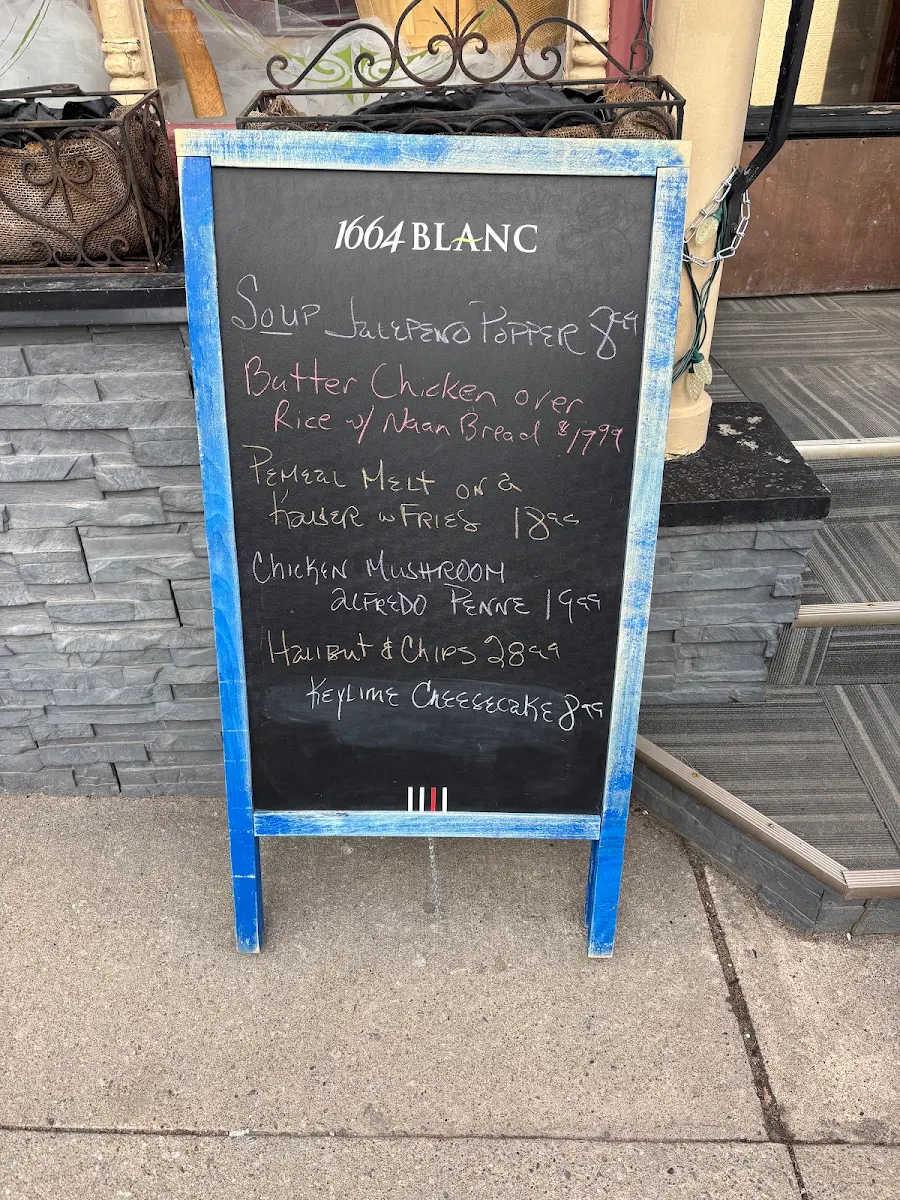 1664 BLANC
SOUP JALEPENO POPPER 8 99
Butter Chicken over
Rice w/ Naan Bread $17 99
PEMEAL MELT ON a
KAISER w FRIES 18 99
CHICKEN MUSHROOM
ALFREDO PENNE 19 99
HALIBUT & CHIPS 28 99
KEYLIME CHEESECAKE 8 99